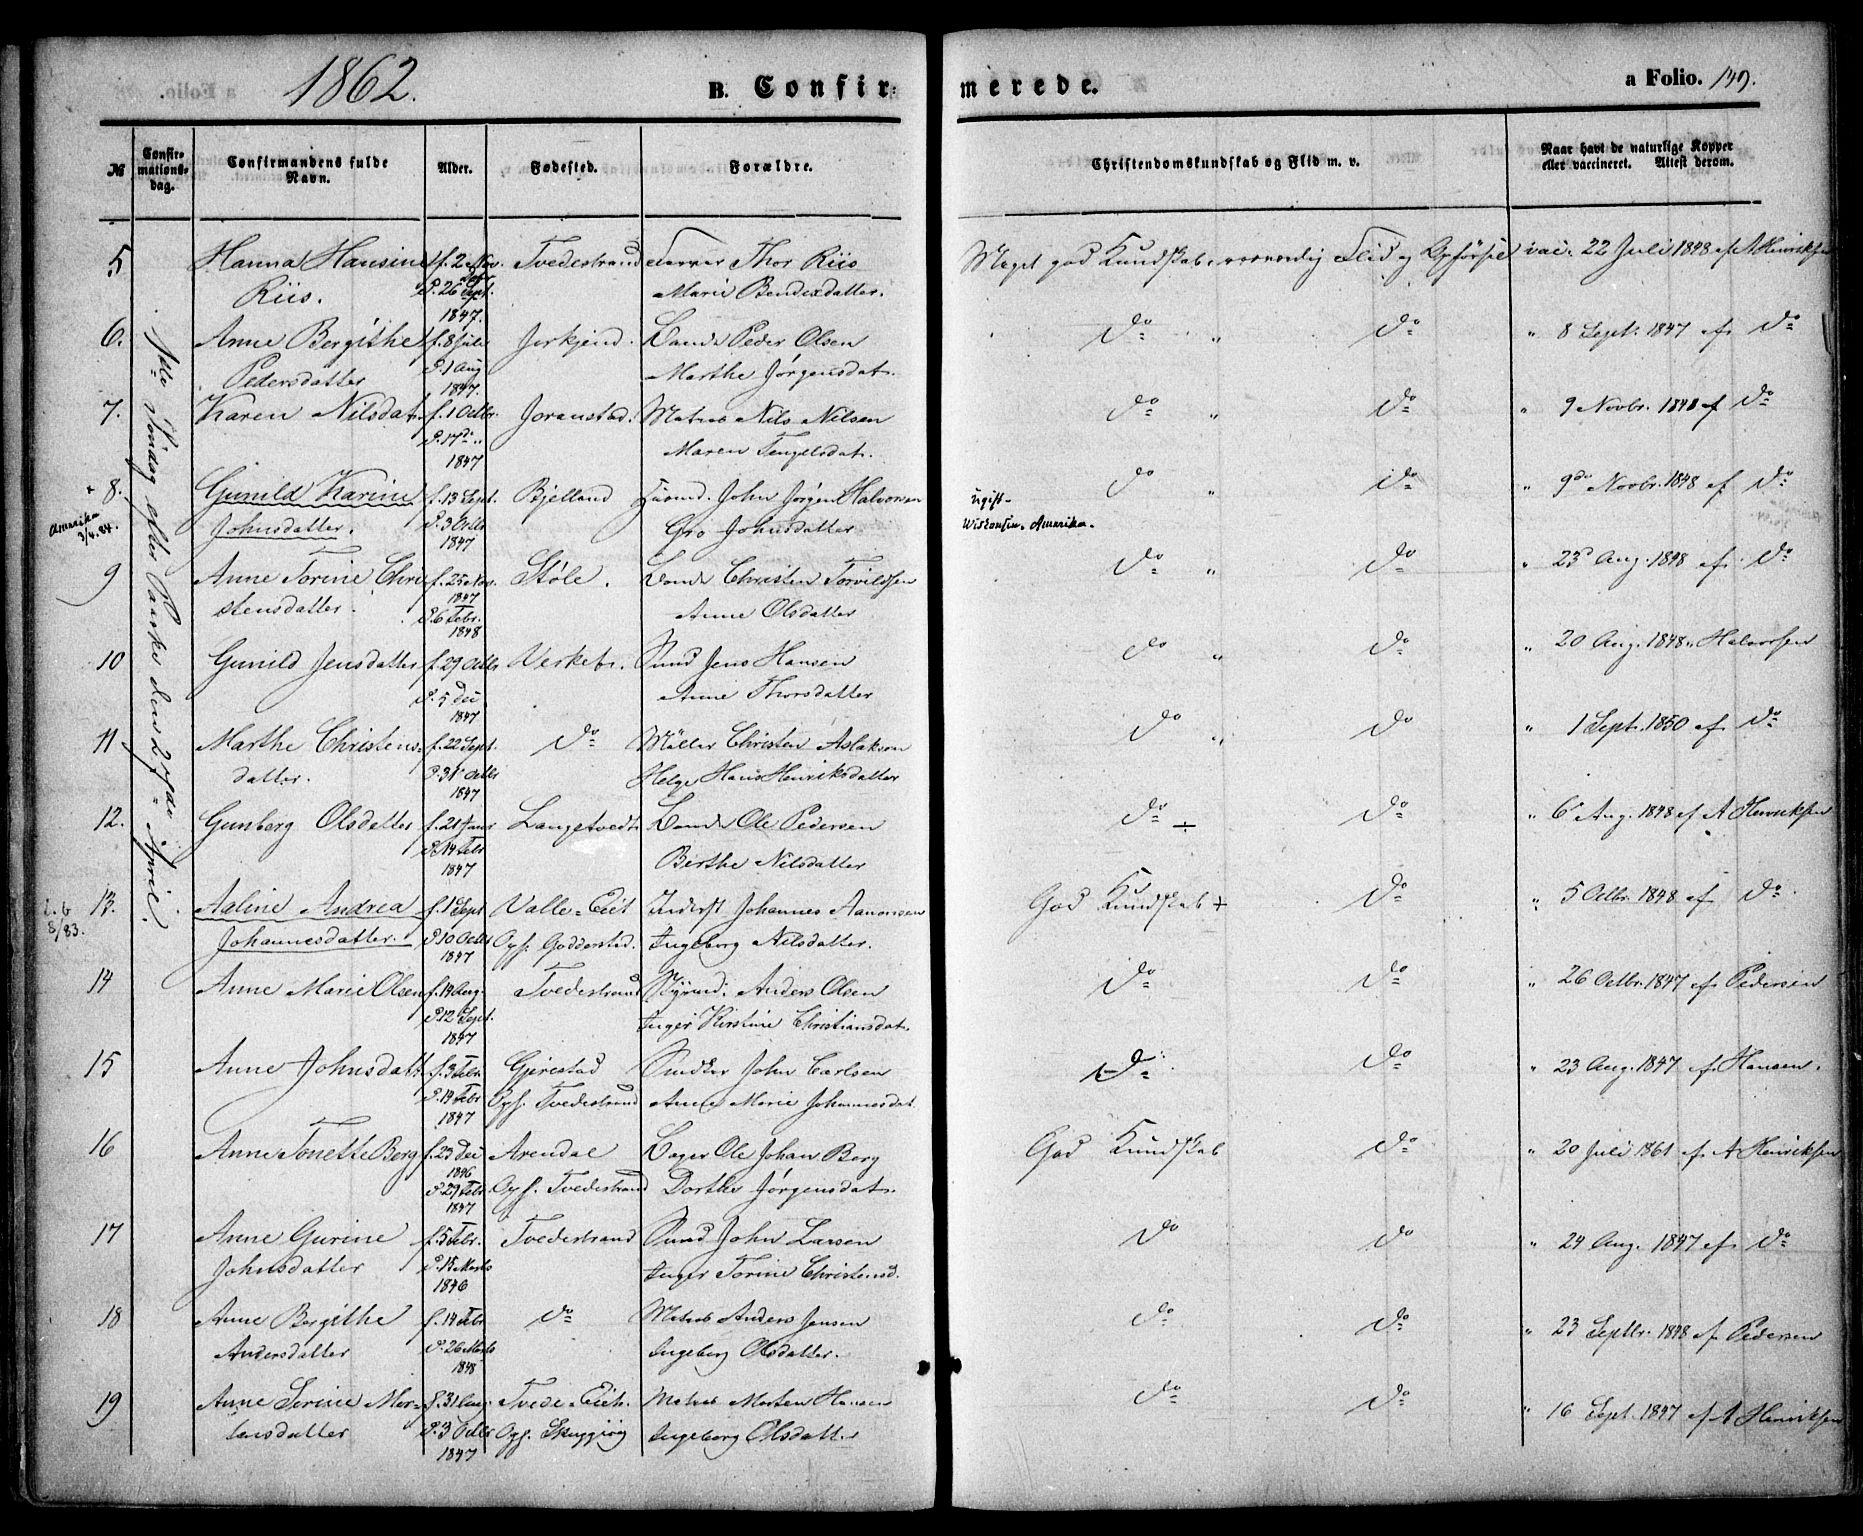 1862. B. Confirmerede. a Folio. 149.
№ Confirmationsdag. Confirmandens fulde Navn. Alder. Fødested. Forældre. Christendomskundskab og Flid m. v. Naar havt de naturlige Kopper eller vaccineret. Attest derom.
1ste Søndag efter Paaske den 27de April.
5 Hanna Hansine f. 2 Nov. Tvedestrand Thor Riis Meget god Kundskab, Flid og Opførsel vac. 22 Juli 1848 af A Henriksen
Riis. d. 26 Marie Bendixdatter.
1847.
6. Anne Bergithe f. 8 Juli Peder Olsen do " do " 8 Sept. 1847 af do
Pedersdatter d. 1 Aug Marthe Jørgensdat.
1847.
7. Karen Nilsdat. f. 1 Octbr. Joranstad. Matros Nils Nilsen do " do " 9 Novbr. 1848 af do
d. 17d " Maren Tengelsdat.
1847
+ 8. Gunild Karine f. 13 Sept. Bjelland John Jørgen Halvorsen ugift- do " do " 9de Novbr. 1848 af do
Amerika 3/4.84. Johnsdatter. d. 3 Octbr Gro Johnsdatter Wiskonsin. Amerika.
1847
9 Anne Torine Chri f. 25 Nov. Støle. Christen Torvildsen do " do " 23d Aug. 1848 af do
stensdatter. 1847 Anne Olsdatter
d. 6 Febr. 1848
10 Gunild Jensdatter f. 29 Octbr Verket. Jens Hansen do " do " 20 Aug. 1848 " Halvorsen
d. 5 Dec Anne Thorsdatter
1847
11 Marthe Christens- f. 22 Sept. do Møller Christen Aslaksen do " do " 1 Sept. 1850 af do
datter. d. 31 Octbr Helge Hans Henriksdatter
1847
12. Gunberg Olsdatter f. 21 Janr Langetvedt Ole Pedersen do ÷ do " 6 Aug. 1848 af A Henriksen
d. 14 Febr Birthe Nilsdatter
1847
13. Aaline Andrea f. 1 Sept Valle-Eiet Inderst Johannes Aanonsen God Kundskab + do " 5 Octbr. 1848 af do
8/83. Johannesdatter. d. 10 Octbr Opf. Godderstad. Ingeborg Nilsdatter.
1847
14 Anne Marie Olsen f. 14 Aug. Tvedestrand Anders Olsen do do " 26 Octbr. 1847 af Pedersen
d. 12 Sept. Inger Kirstine Christiansdat.
1847
15 Anne Johnsdatt f. 3 Febr. Gjerestad John Carlsen do do " 23 Aug. 1847 af Hansen.
d. 14 Febr Opf. Tvedestrand Anne Marie Johannesdat.
1847
16 Anne Tonette Berg f. 23 Dec Arendal Ole Johan Berg God Kundskab do " 20 Juli 1861 af A Henriksen
1846 Opf. Tvedestrand Dorthe Jørgensdat.
d. 29 Febr. 1847
17 Anne Gurine f. 5 Febr. Tvedestrand John Larsen do do " 24 Aug. 1847 af do
Johnsdatter d. 15 Marts Inger Torine Christensd.
1846
18 Anne Bergithe f. 14 Febr do Matros Anders Jensen do do " 23 Septbr. 1848 af Pedersen
Andersdatter d. 26 Marts Ingeborg Olsdatter.
1848
19 Anne Serine Mor- f. 31 Aug. Tvede-Eiet Matros Morten Hansen do do " 16 Sept. 1847 af A Henriksen
tensdatter d. 3 Octbr Opf. Ingeborg Olsdatter
1847